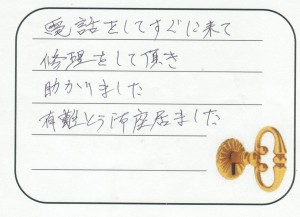 電話をしてすぐに来て
修理をして頂き
助かりました
有難とう御座居ました